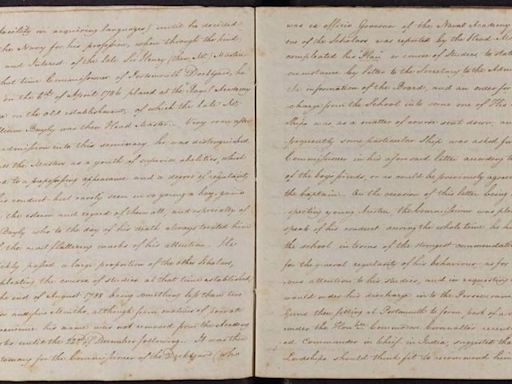 facility in acquiring languages) until he decided
the Navy for his profession, when through the kind
and Interest of the late Sir Henry (then Mr.) Martin
that time Commissioner of Portsmouth Dockyard, he
on the 6th of April 1786 placed at the Royal Academy
on the old establishment, of which the late Mr.
William Bayly was then Head Master. Very soon after
admission into this seminary he was distinguished
the Masters as a youth of superior abilities, which
to a prepossessing appearance and a degree of regularity
his conduct but rarely seen in so young a boy, gained
the esteem and regard of them all, and especially of
Bayly who to the day of his death always treated him
the most flattering marks of his attention. He
passed a large proportion of the other Scholars,
completing the course of studies at that time established
the end of August 1788 being something less than two
and five Months, although from motives of private
his name was not removed from the Academy
until the 22d of December following. It was then
customary for the Commissioner of the Dockyard (who
was ex officio Governor of the Naval Academy
one of the Scholars was reported by the Head Master
compleated his Plan or course of Studies to state
circumstance by letter to the Secretary to the Admiralty
the information of the Board, and an order for
charge from the School into some one of His
Ships was as a matter of course sent down, and
frequently some particular Ship was asked for
Commissioner in his aforesaid letter according to
of the boys friends, or as could be previously agreed
the captain. On the occasion of this letter being
reporting young Austen the Commissioner was pleased
speak of his conduct during the whole time he had
the school in terms of the strongest commendation
for the general regularity of his behaviour, as for
attention to his studies, and in requesting
would order his discharge into the Perseverance
Guns then fitting at Portsmouth to form part of a
under the Honble. Commodore Cornwallis recently
Commander in Chief in India, suggested that
Lordships should think fit to recommend him